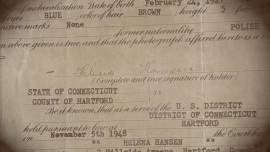 of naturalization Date of birth February 24, 192
BLUE color of hair BROWN height 5
marks None
former nationality POLISH
above given is true, and that the photograph affixed hereto is a
Helena Hansen
(Complete and true signature of holder)
STATE OF CONNECTICUT
COUNTY OF HARTFORD
Be it known, that at a term of the U. S. DISTRICT
DISTRICT OF CONNECTICUT
held pursuant to law at HARTFORD
on November 5th 1948 the Court
HELENA HANSEN
Hillside Avenue, Hartford, Conn